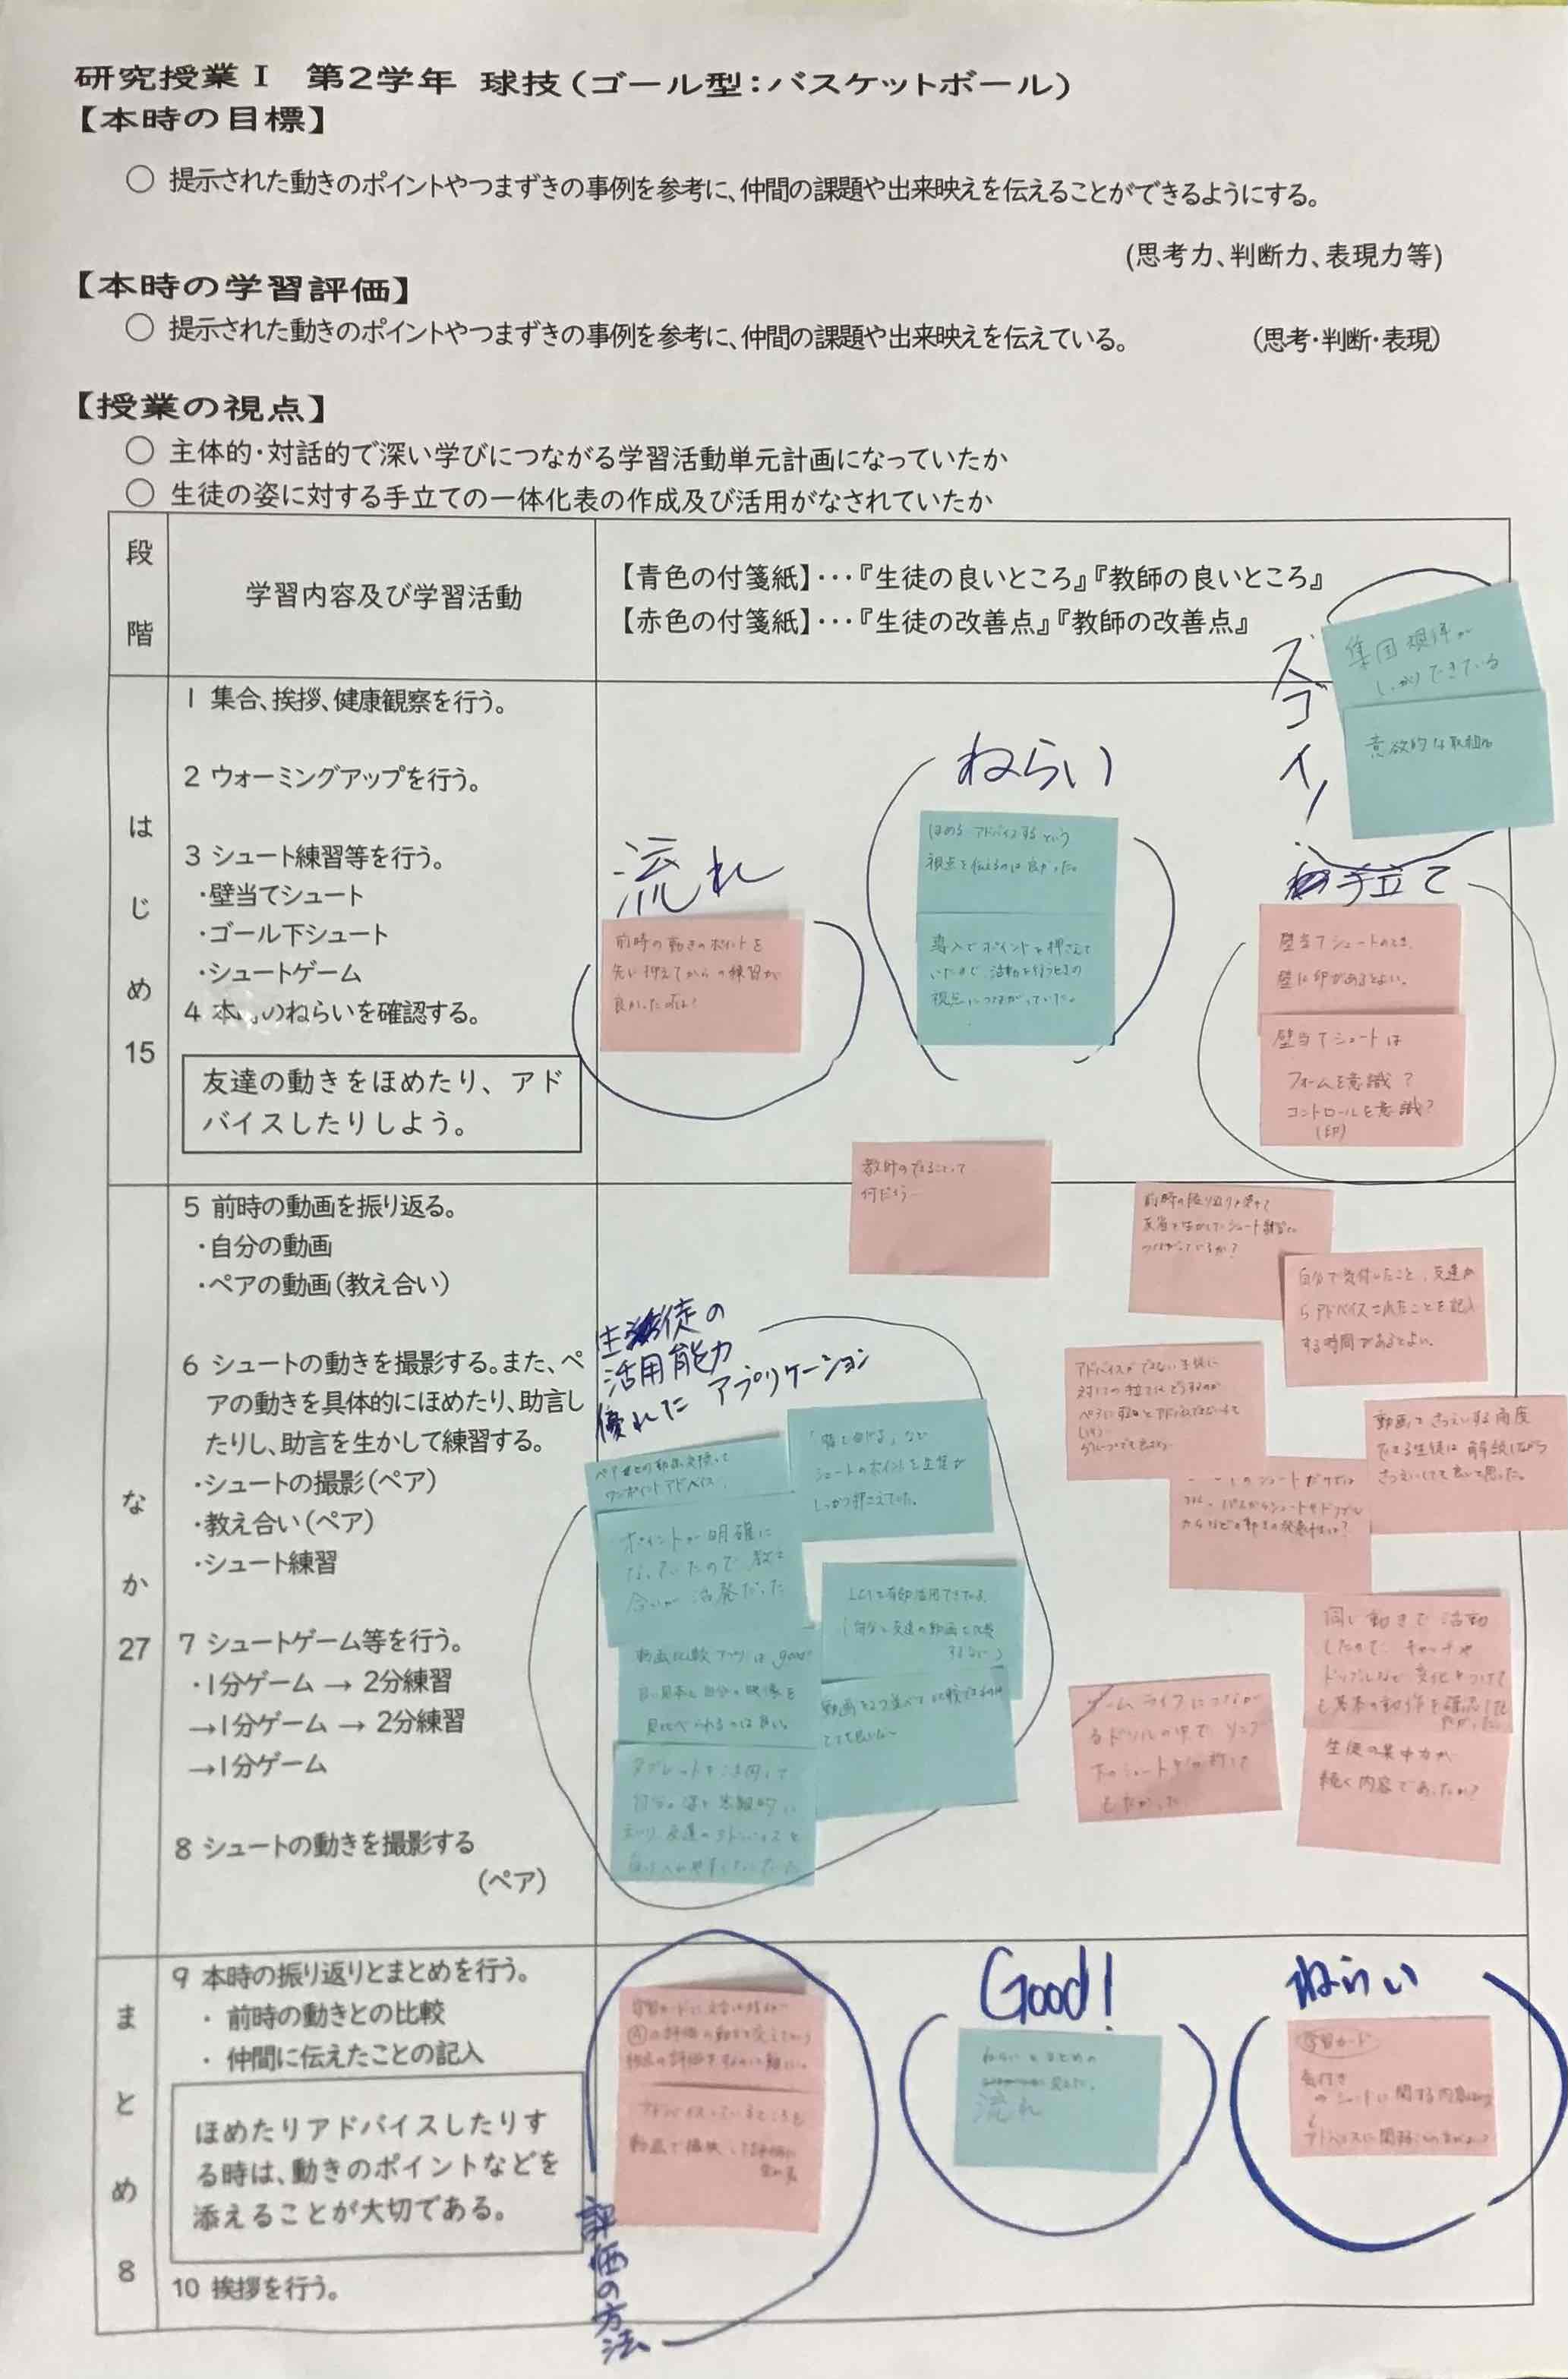 研究授業Ⅰ 第2学年 球技(ゴール型:バスケットボール)
【本時の目標】
○ 提示された動きのポイントやつまずきの事例を参考に、仲間の課題や出来映えを伝えることができるようにする。
(思考力、判断力、表現力等)
【本時の学習評価】
○ 提示された動きのポイントやつまずきの事例を参考に、仲間の課題や出来映えを伝えている。 (思考・判断・表現)
【授業の視点】
○ 主体的・対話的で深い学びにつながる学習活動単元計画になっていたか
○ 生徒の姿に対する手立ての一体化表の作成及び活用がなされていたか
段階
学習内容及び学習活動
【青色の付箋紙】・・・『生徒の良いところ』『教師の良いところ』
【赤色の付箋紙】・・・『生徒の改善点』『教師の改善点』
スゴイ!
集団規律が
しっかりできている
意欲的な取組み
はじめ
15
1 集合、挨拶、健康観察を行う。
2 ウォーミングアップを行う。
3 シュート練習等を行う。
・壁当てシュート
・ゴール下シュート
・シュートゲーム
4 本 のねらいを確認する。
友達の動きをほめたり、アド
バイスしたりしよう。
流れ
前時の動きのポイントを
先に押えてからの練習が
良かったのは?
ねらい
ほめる アドバイスするという
視点を伝えるのは良かった。
導入でポイントを押さえて
いたので、活動を行うときの
視点につながっていた。
手立て
壁当てシュートのとき、
壁に印があるとよい。
壁当てシュートは
フォームを意識?
コントロールを意識?
(印)
教師のできることって
何だろう…
なか
27
5 前時の動画を振り返る。
・自分の動画
・ペアの動画(教え合い)
6 シュートの動きを撮影する。また、ペ
アの動きを具体的にほめたり、助言し
たりし、助言を生かして練習する。
・シュートの撮影(ペア)
・教え合い(ペア)
・シュート練習
7 シュートゲーム等を行う。
・1分ゲーム → 2分練習
→1分ゲーム → 2分練習
→1分ゲーム
8 シュートの動きを撮影する
(ペア)
生徒の
活用能力
優れた アプリケーション
ワンポイントアドバイス
シュートのポイントを生徒が
しっかり押さえていた。
ポイントが明確に
なっていたので 教え
合いが 活発だった
ICTを有効活用できている。
(自分と友達の動画を比較
するなど)
動画比較アプリは good
見比べられるのは良い。
動画を2つ並べて比較できるのは
とても良いな〜
タブレットを活用して
つながっているか?
自分で気付いたこと、友達か
らアドバイスされたことを記入
する時間があるとよい。
アドバイスができない生徒に
グループでも良い
動画をさつえいする角度
できる生徒は 解説しながら
さつえいしても良いと思った。
同じ動きで活動
したので、キャッチや
ドリブルなど 変化をつけて
も基本の動作を確認しても
生徒の集中力が
続く内容であったか?
まとめ
8
9 本時の振り返りとまとめを行う。
・ 前時の動きとの比較
・ 仲間に伝えたことの記入
ほめたりアドバイスしたりす
る時は、動きのポイントなどを
添えることが大切である。
10 挨拶を行う。
評価の方法
アドバイスしているところを
Good!
ねらいとまとめの
流れ
ねらい
学習カード
気付き